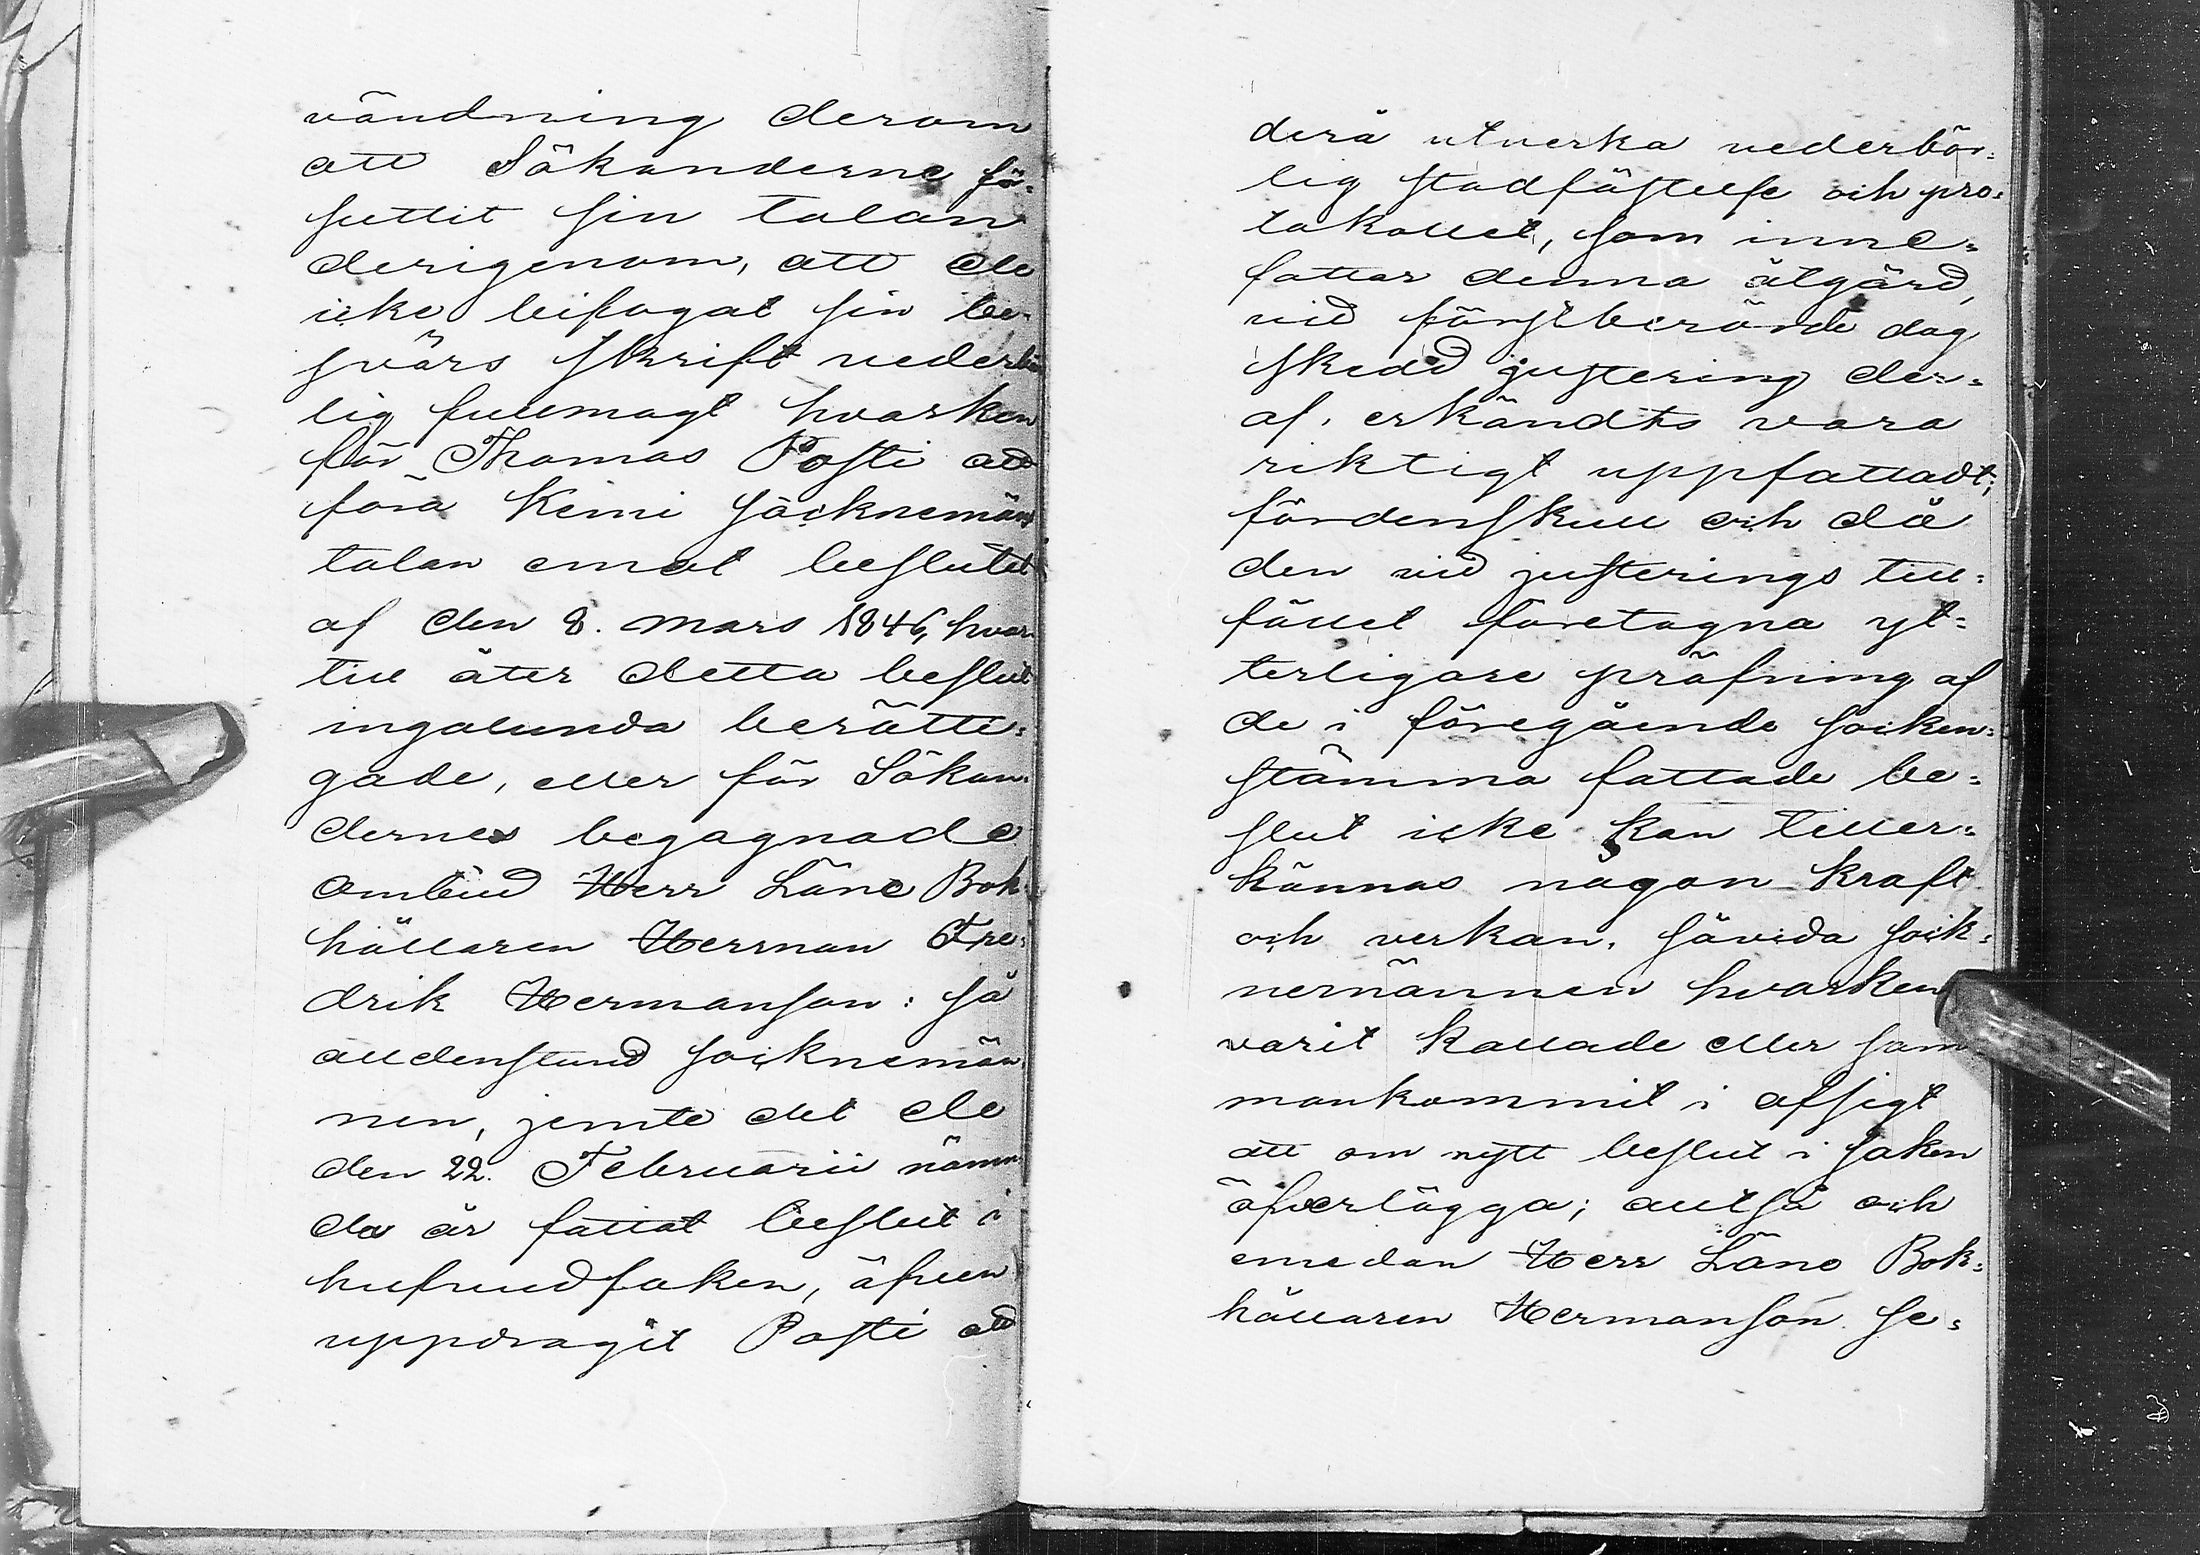 vändning derom
att Sökanderne för-
suttit sin talan
derigenom, att de
icke bifogat sin be-
svärs skrift vederbör
lig fullmagt hvarken
för Thomas Posti att
föra Kemi Säcknemäns
talan emot beslutet
af den 8. Mars 1846, hvar-
till åter detta beslut
ingalunda berätti-
gade, eller för Sökan-
dernes begagnade
Ombud Herr Läne Bok-
hållaren Herrman Fre-
drik Hermanson: så
alldenstund socknemän-
nen, jemte det de
den 22. Februarii nämn-
da år fattat beslut i
hufvudsaken, äfven
uppdragit Posti att
derå utverka vederbör-
lig stadfästelse och pro-
tokollet, som inne-
fattar denna åtgärd,
vid förstberörde dag
skedd justering der-
af, erkändts vara
riktigt uppfattadt;
fördenskull och då
den vid justerings till-
fället företagna yt-
terligare pröfning af
de i föregående socken-
stämma fattade be-
slut icke kan tiller-
kännas någon kraft
och verkan, såvida sock-
nemännen hvarken
varit kallade eller sam-
mankommit i afsigt
att om nytt beslut i saken
öfverlägga; alltså och
emedan Herr Läno Bok-
hållaren Hermanson se-